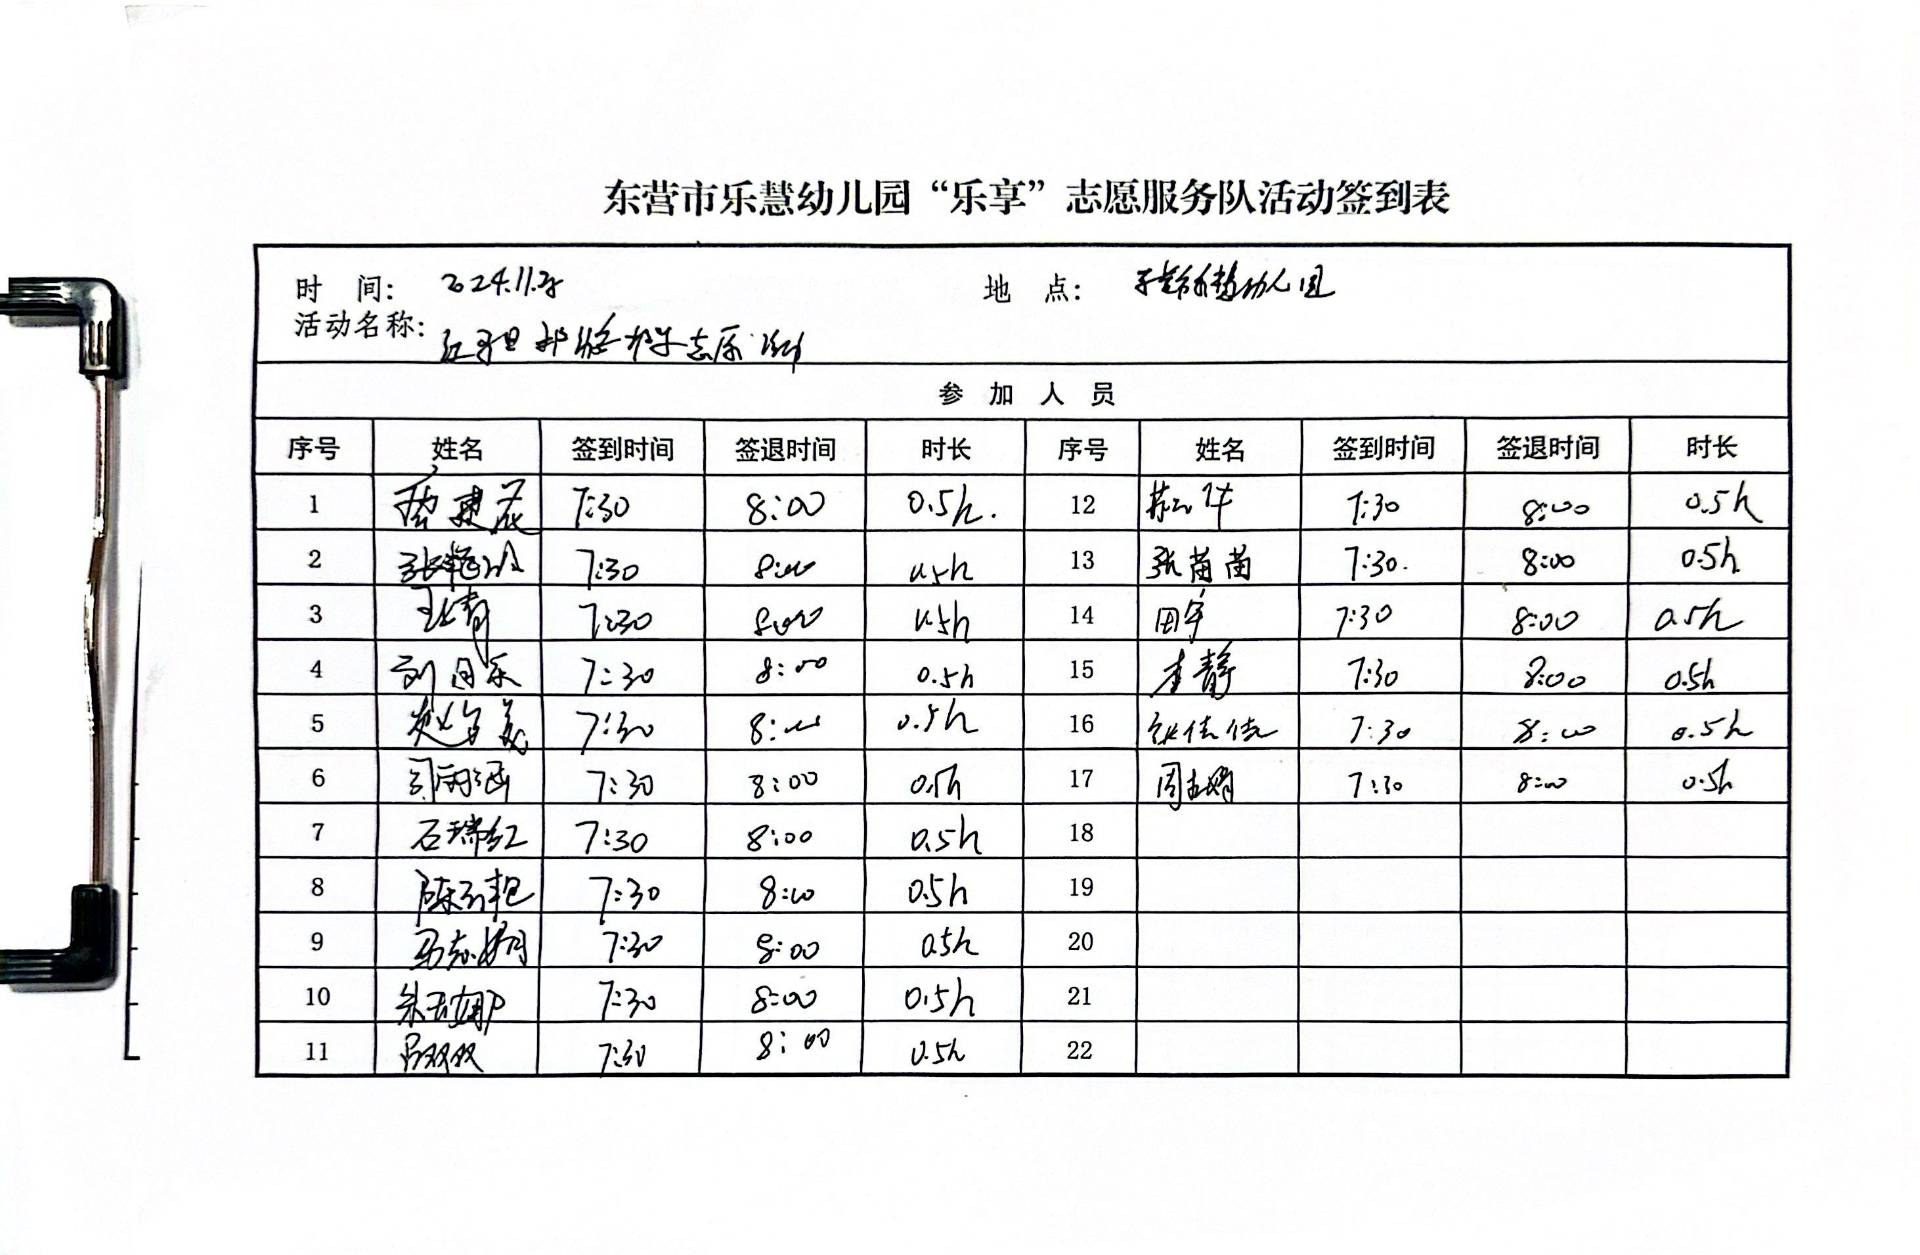 东营市乐慧幼儿园“乐享”志愿服务队活动签到表
时 间： 2024.11. 地 点： 幼儿园
活动名称： 志愿
参 加 人 员
序号 姓名 签到时间 签退时间 时长 序号 姓名 签到时间 签退时间 时长
1 7:30 8:00 0.5h. 12 7:30 8:00 0.5h
2 张艳 7:30 8:00 0.5h 13 张苗苗 7:30. 8:00 0.5h
3 王青 7:30 8:00 0.5h 14 田宇 7:30 8:00 0.5h
4 7:30 8:00 0.5h 15 李静 7:30 8:00 0.5h
5 7:30 8:00 0.5h 16 张佳佳 7:30 8:00 0.5h
6 司雨涵 7:30 8:00 0.5h 17 周娟 7:30 8:00 0.5h
7 石瑞红 7:30 8:00 0.5h 18
8 陈 艳 7:30 8:00 0.5h 19
9 7:30 8:00 0.5h 20
10 7:30 8:00 0.5h 21
11 吕双双 7:30 8:00 0.5h 22